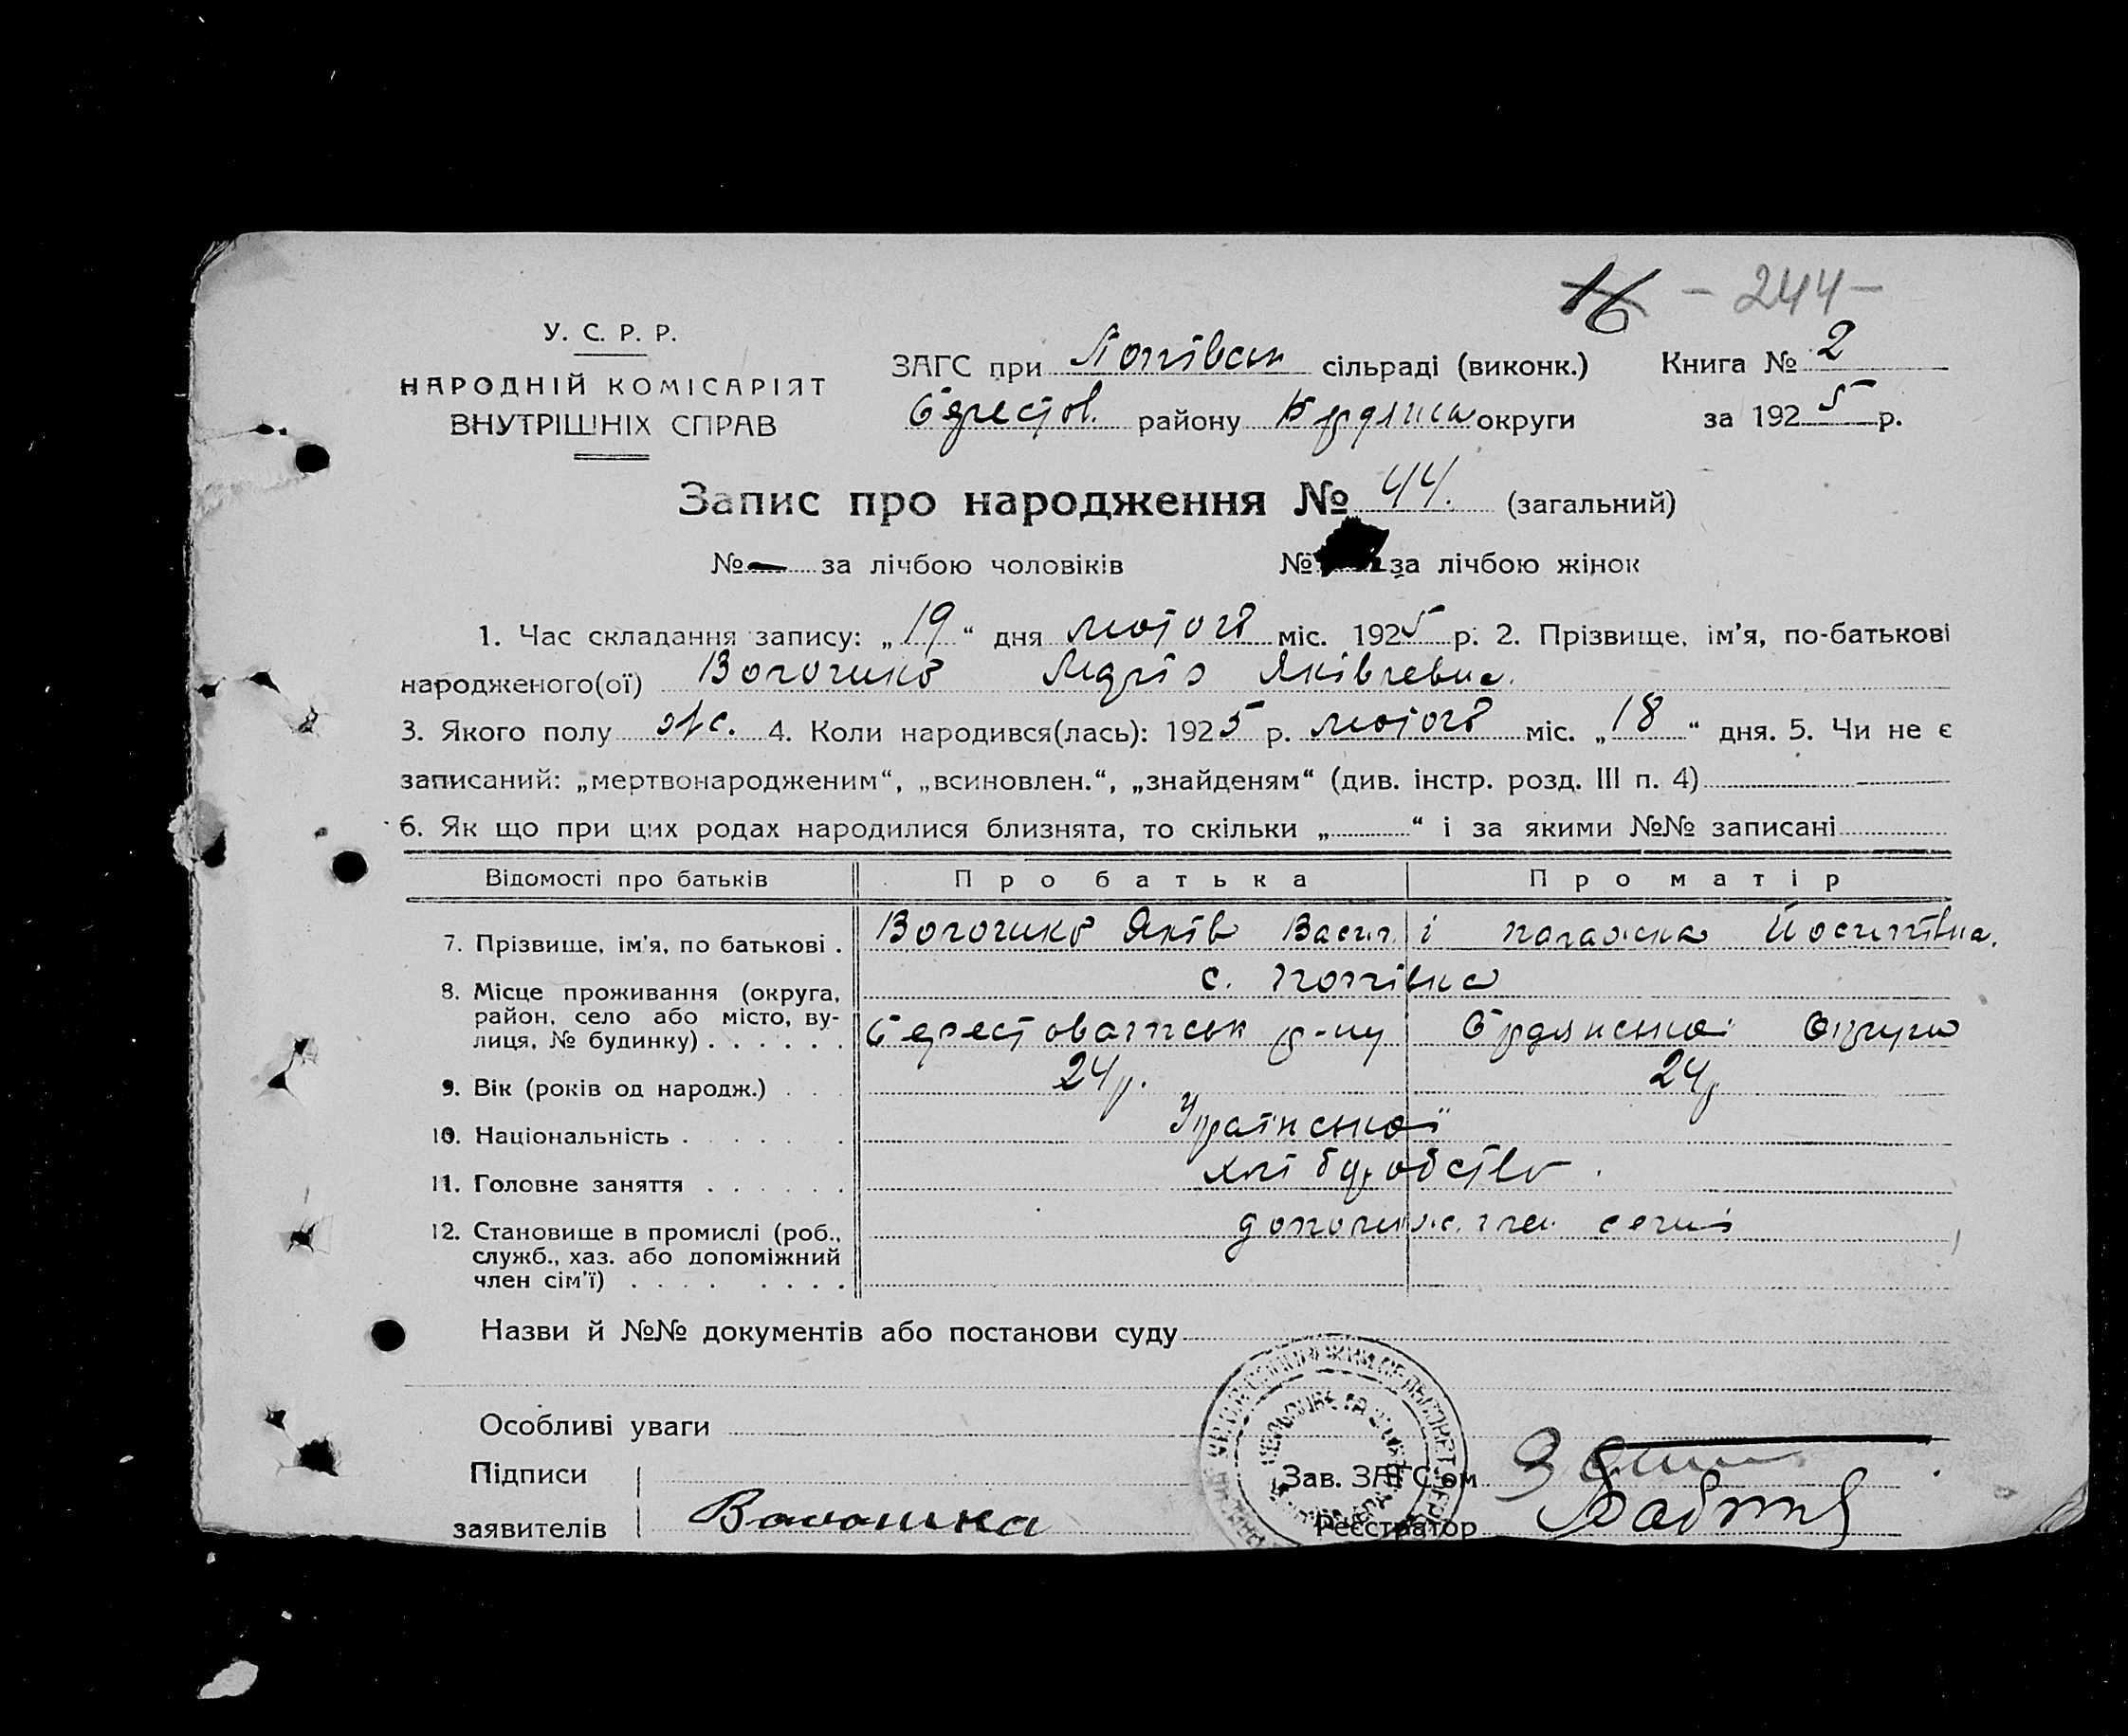 16 - 244 -
У. С. Р. Р.
НАРОДНІЙ КОМІСАРІЯТ
ВНУТРІШНІХ СПРАВ
ЗАГС при Попівськ сільраді (виконк.) Книга № 2
Берестов. району Бердянськ округи за 1925 р.
Запис про народження № 44. (загальний)
№ — за лічбою чоловіків № за лічбою жінок
1. Час складання запису: „19“ дня лютого міс. 1925 р. 2. Прізвище, ім'я, по-батькові
народженого(ої) Волошко Марія Яківлевна.
3. Якого полу ж. 4. Коли народився(лась): 1925 р. лютого міс. „18“ дня. 5. Чи не є
записаний: „мертвонародженим“, „всиновлен.“, „знайденям“ (див. інстр. розд. III п. 4)
6. Як що при цих родах народилися близнята, то скільки „ “ і за якими №№ записані
Відомості про батьків Про батька Про матір
7. Прізвище, ім'я, по батькові . Волошко Яків Васил. і Палажка Йосипівна.
8. Місце проживання (округа, с. Попівка
район, село або місто, ву-
лиця, № будинку) . . . . . . Берестоватськ р-ну Бердянської Округи
9. Вік (років од народж.) . . . 24 р. 24 р
10. Національність . . . . . . Української
11. Головне заняття . . . . . . хліборобство.
12. Становище в промислі (роб., допоміж. член семії
служб., хаз. або допоміжний
член сім'ї) . . . . . . . .
Назви й №№ документів або постанови суду
Особливі уваги
Підписи Зав. ЗАГС'ом
заявителів Волошка Реєстратор